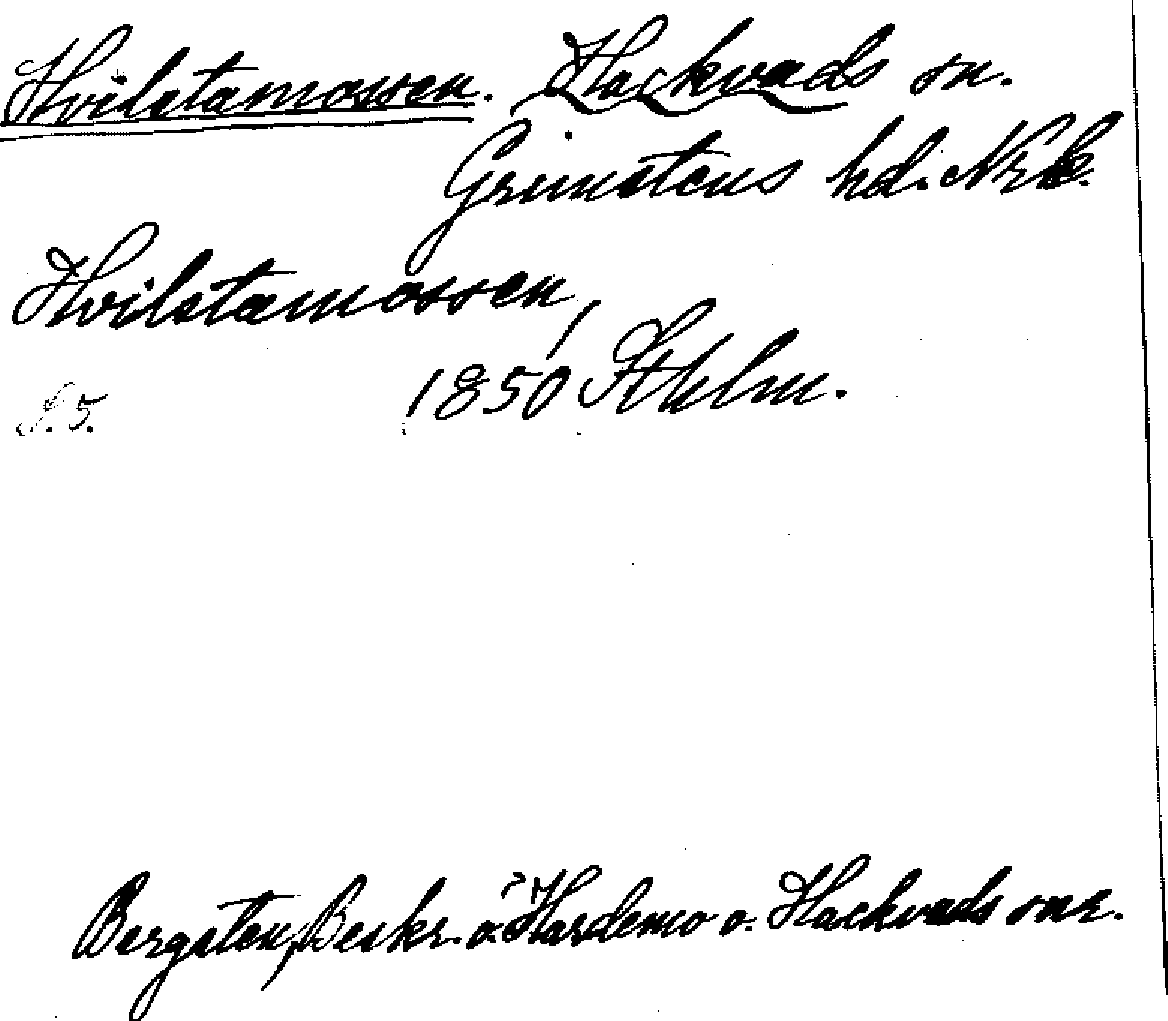 Hvilstamossen. Hackvads sn.
Grimstens hd. Nrk.
Hvilstamossen,
1850 Sthlm.
S. 5.
Bergsten, Beskr. ö. Hardemo o. Hackvads snr.